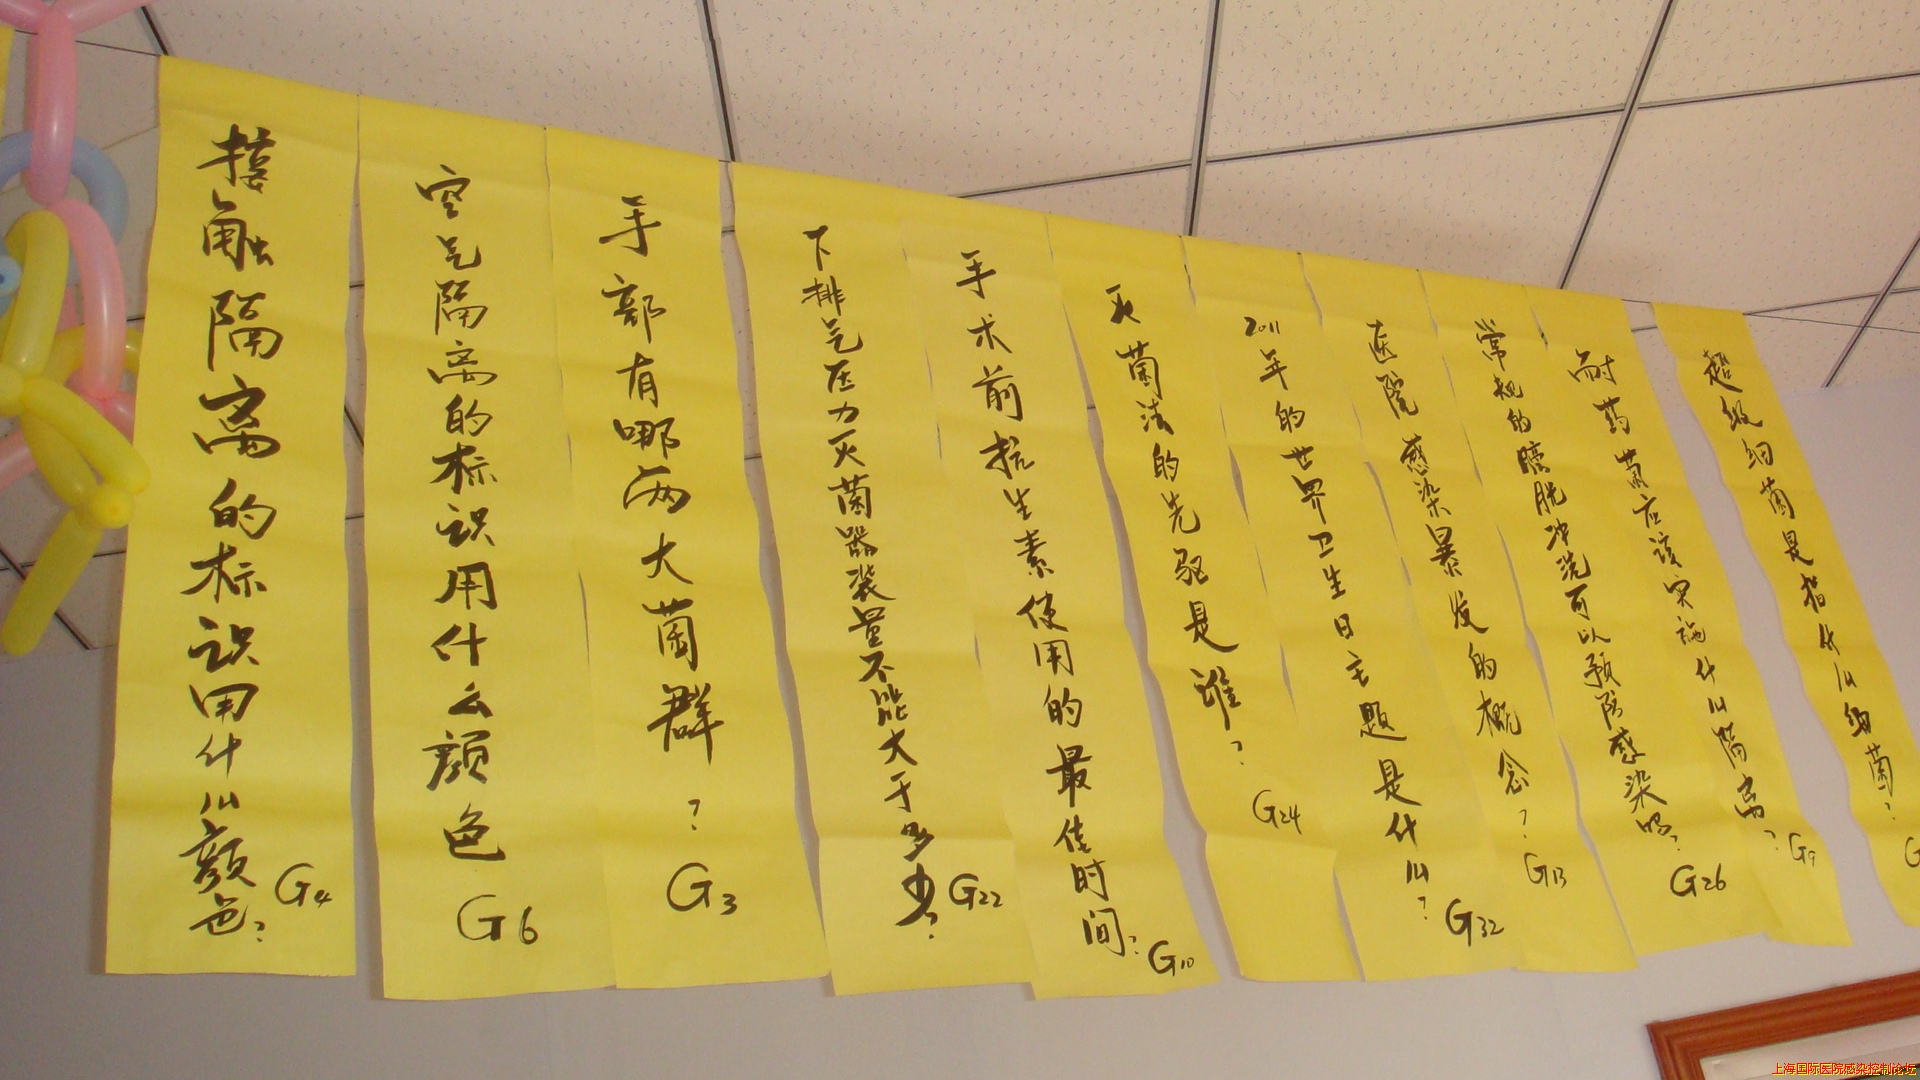 接触隔离的标识用什么颜色?
G4
空气隔离的标识用什么颜色
G6
手部有哪两大菌群?
G3
下排气压力灭菌器装量不能大于多少?
G22
手术前抗生素使用的最佳时间?
G10
灭菌法的先驱是谁?
G24
2011年的世界卫生日主题是什么?
G32
医院感染暴发的概念?
G13
常规的膀胱冲洗可以预防感染吗?
G26
耐药菌应该实施什么隔离?
G9
超级细菌是指什么细菌?
G
上海国际医院感染控制论坛